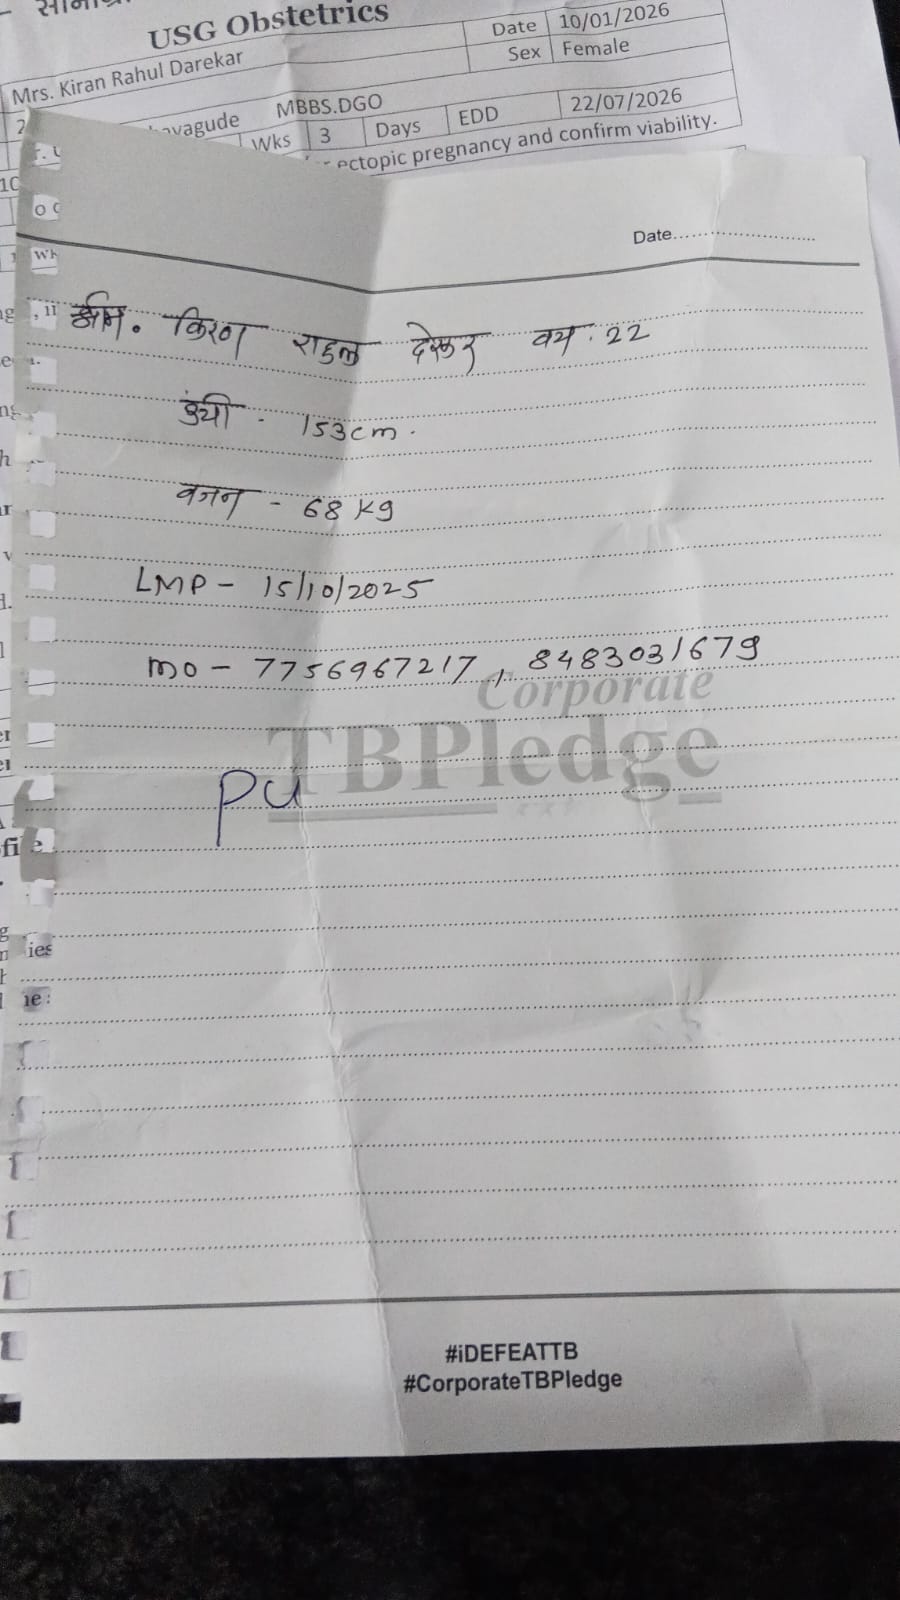 USG Obstetrics
Mrs. Kiran Rahul Darekar
Date 10/01/2026
Sex Female
MBBS.DGO
Wks 3 Days EDD 22/07/2026
ectopic pregnancy and confirm viability.
Date
किरण राहुल देरकर वय . 22
उंची - 153cm.
वजन - 68 kg
LMP - 15/10/2025
mo - 7756967217, 8483031679
Corporate
TBPledge
PU
#iDEFEATTB
#CorporateTBPledge